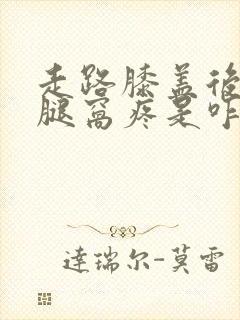 走路膝盖後
腿窝疼是咋
達瑞尔-莫雷